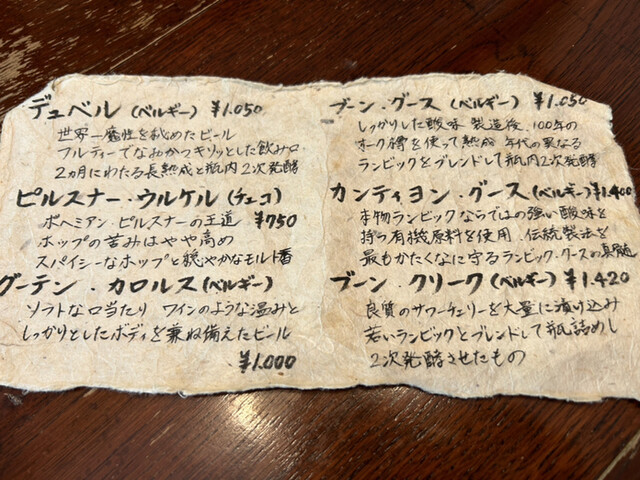 デュベル (ベルギー) ¥1.050
世界一魔性を秘めたビール
フルーティーでなおかつキリッとした飲み口
2ヵ月にわたる長熟成と瓶内2次発酵
ピルスナー・ウルケル (チェコ)
ボヘミアン・ピルスナーの王道 ¥750
ホップの苦みはやや高め
スパイシーなホップと穏やかなモルト香
グーデン・カロルス (ベルギー)
ソフトな口当たり ワインのような温みと
しっかりとしたボディを兼ね備えたビール
¥1.000
ブーン・グース (ベルギー) ¥1.050
しっかりした酸味 製造後、100年の
オーク樽を使って熟成 年代の異なる
ランビックをブレンドして瓶内2次発酵
カンティヨン・グース (ベルギー) ¥1.400
本物ランビックならではの強い酸味を
持つ有機原料を使用、伝統製法を
最もかたくなに守るランビック・グースの真髄
ブーン・クリーク (ベルギー) ¥1.420
良質のサワーチェリーを大量に漬け込み
若いランビックとブレンドして瓶詰めし
2次発酵させたもの